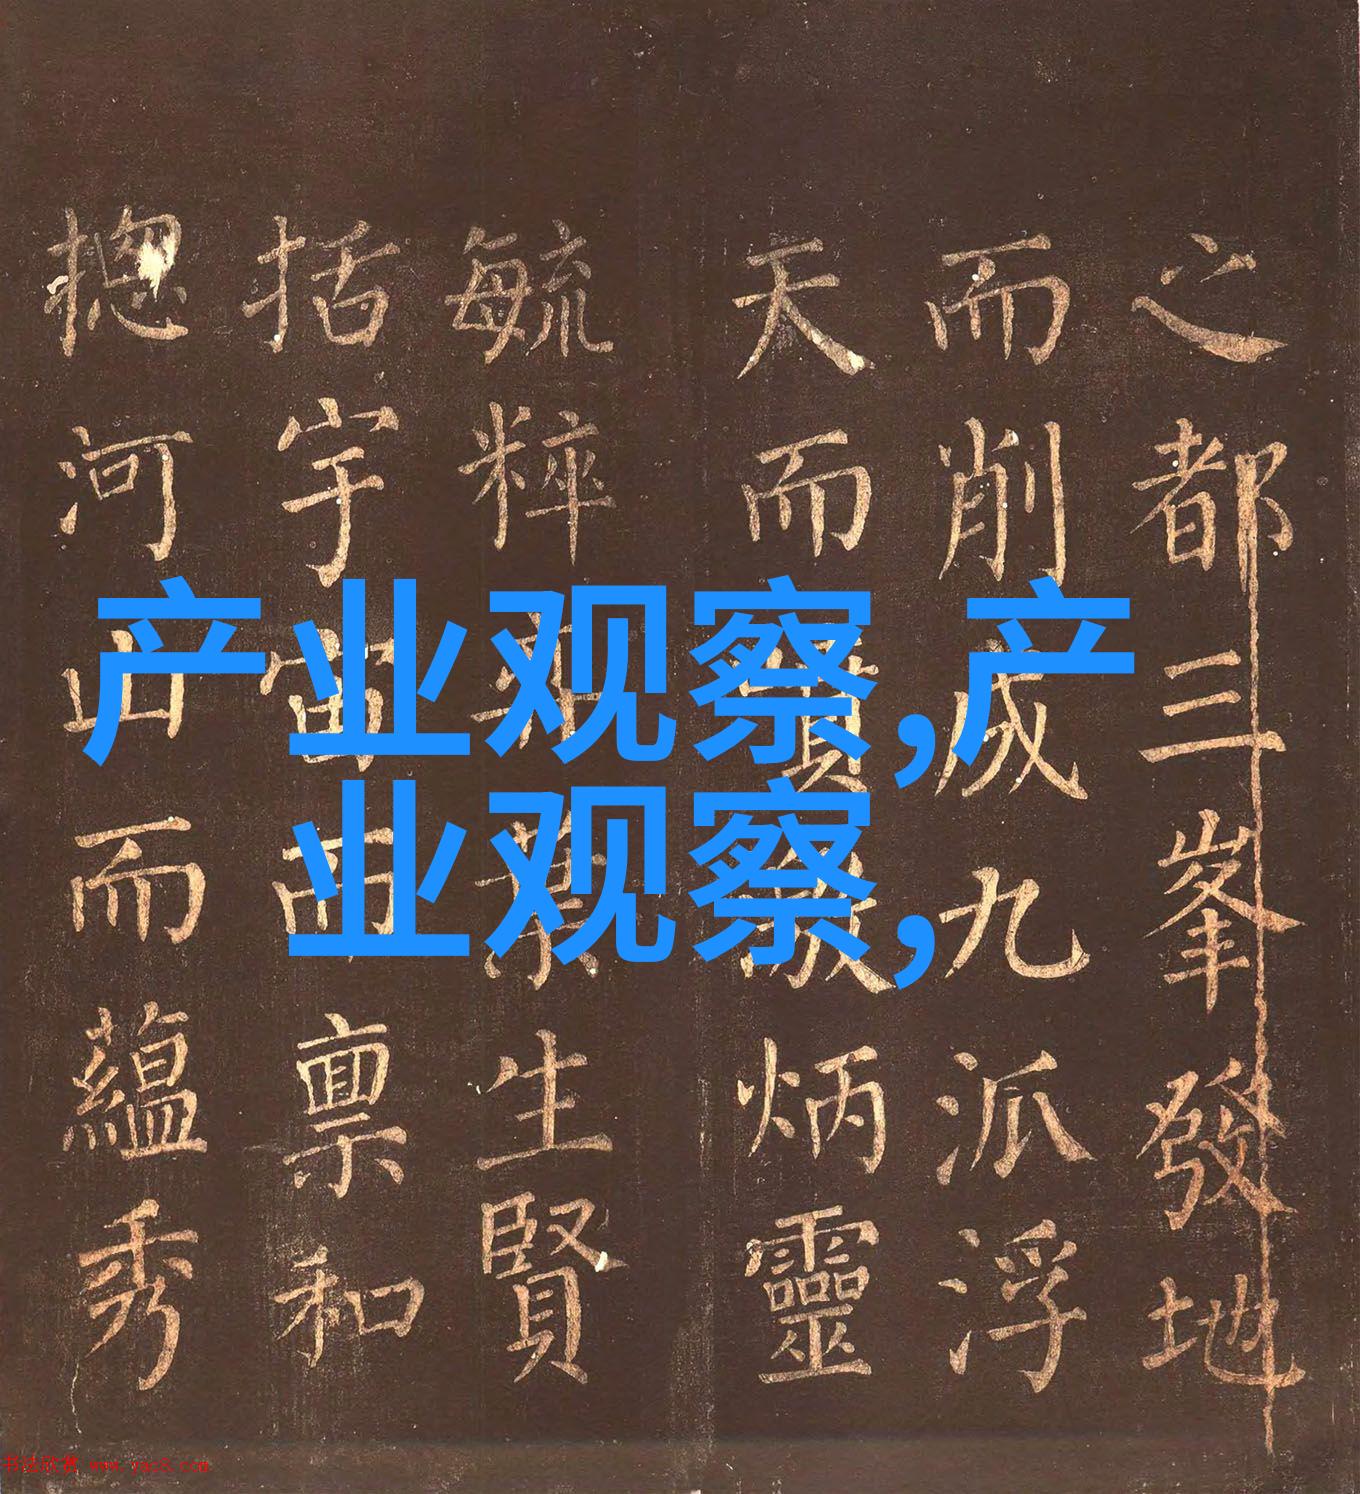 之都三峯發地
而削成九派浮
天而炳靈
毓粹生賢
括宇宙而禀和
揔河山而蘊秀
产业观察,产
业观察,
书法欣赏 www.yac8.com